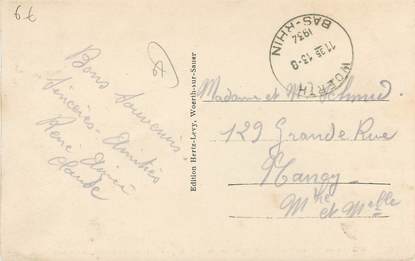 67
Bons Souvenirs
Sincères Amitiés
René
Claude
Edition Hertz-Levy, Woerth-sur-Sauer
WOERTH
BAS-RHIN
11 35 13-8
1934
Madame et Mr Schmid
129 Grande Rue
Nancy
Mthe et Mselle